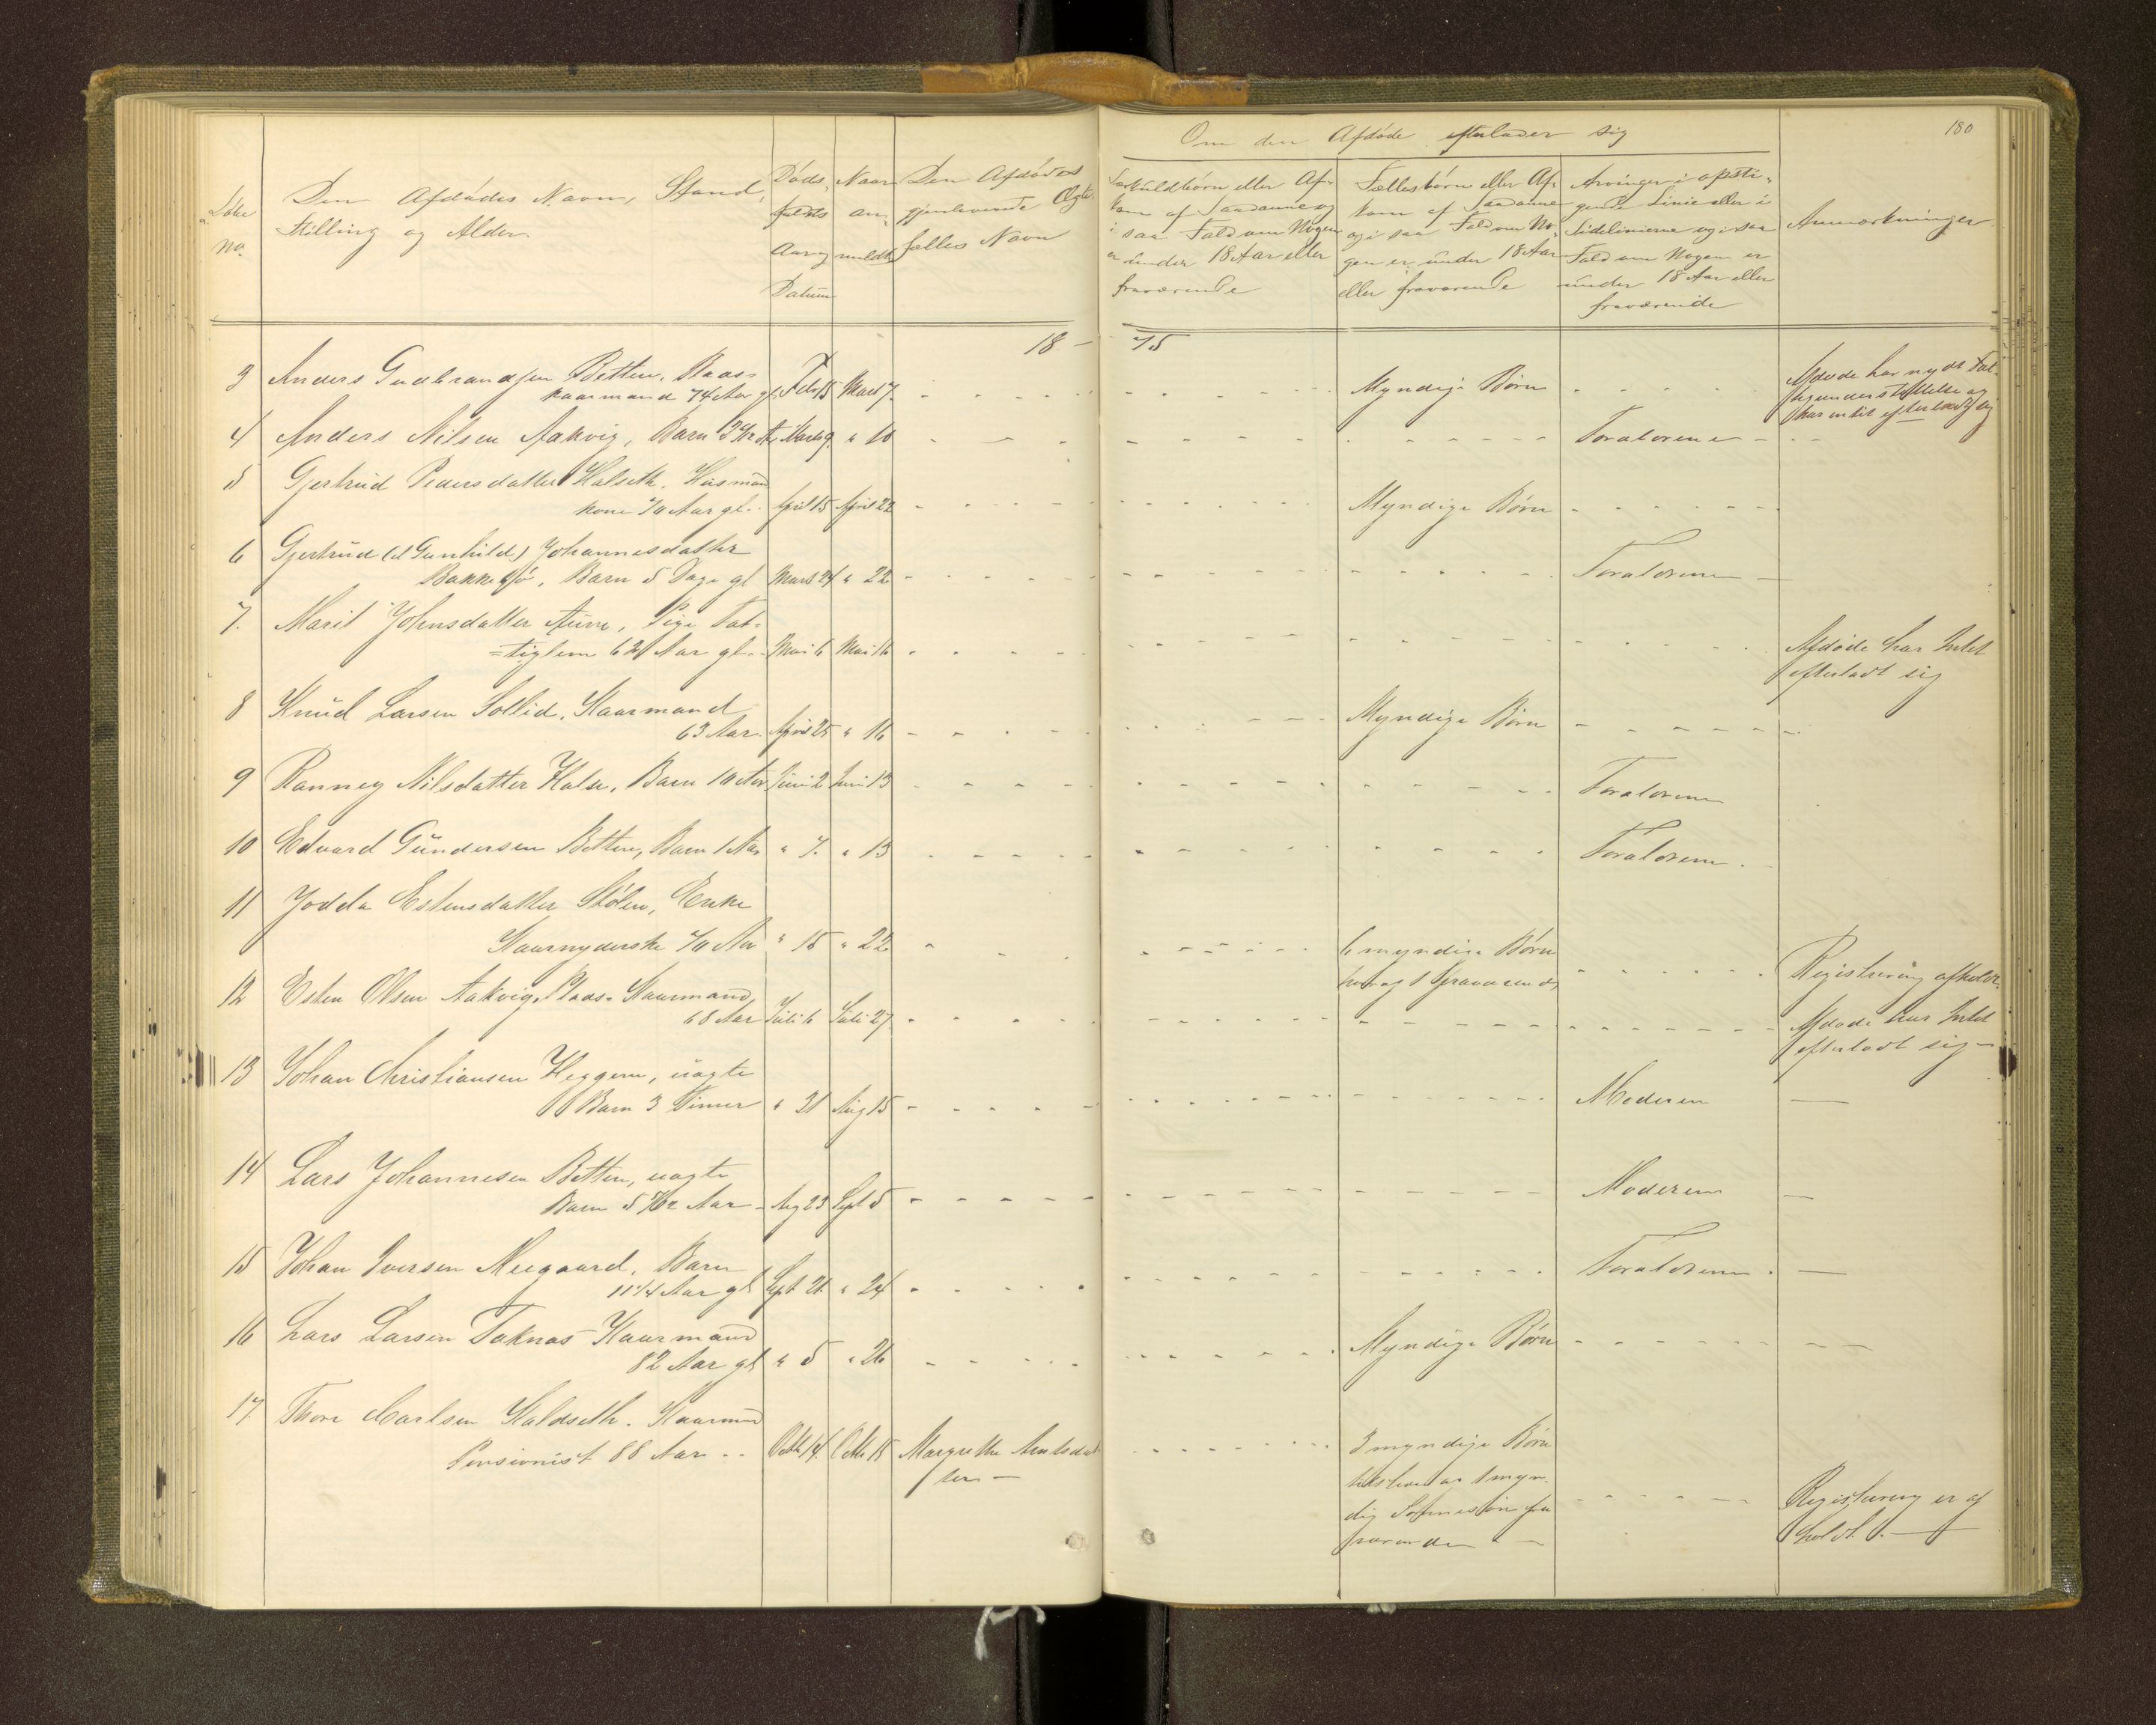 180
Om den Afdøde efterlader sig
Løbe No.
Den Afdødes Navn, Stand,
Stilling og Alder.
Døds-
faldets
Aar og
Datum
Naar
an-
meldt
Den Afdødes
gjenlevende Ægte-
fælles Navn
Særkuldbørn eller Af-
kom af Saadanne og
i saa Fald om Nogen
er under 18 Aar eller
fraværende
Fællesbørn eller Af-
kom af Saadanne
og i saa Fald om No-
gen er under 18 Aar
eller fraværende
Arvinger i opsti-
gende Linie eller i
Sidelinierne og i saa
Fald om Nogen er
under 18 Aar eller
fraværende
Anmærkninger
18 - 75
3 Anders Gudbrandsen Betten, Plads-
kaarmand 74 Aar gl. Feb 15 Mars 7. Myndige Børn Afdøde har nydt Fat-
tigunderstøttelse og
har intet efterladt sig
4 Anders Nilsen Aakvig, Barn Marts 9. " 10 Forældrene
5 Gjertrud Pedersdatter Halseth, Husmand
kone 70 Aar gl. April 15 April 22 Myndige Børn
6 Gjertrud (el Gunhild) Johannesdatter
Barn 5 Dage gl Mars 24 " 22 Forældrene
7. Marit Johnsdatter Aune, Pige Fat-
=tiglem 62 Aar gl. Mai 6 Mai 16 Afdøde har Intet
efterladt sig
8 Knud Larsen Sollid, Kaarmand
63 Aar. April 25 " 16 Myndige Børn
9 Ranney Nilsdatter Halse, Barn 10 Aar Juni 2 Juni 13 Forældrene
10 Edvard Gundersen Betten, Barn 1 Aar " 7. " 13 Forældrene.
11 Jodda Estensdatter Stølen, Enke
Kaarnyderske 70 Aar " 15 " 22 6 myndige Børn
hvoraf 1 fraværende Registrering afholdt.
12 Esten Olsen Aakvig, Plads-Kaarmand,
68 Aar Juli 6 Juli 27 Afdøde har Intet
efterladt sig -
13 Johan Christiansen Heggem, uægte
Barn 3 Timer " 21 Aug 15 Moderen
14 Lars Johannesen Betten, uægte
Barn 5 7/12 Aar Aug 23 Sept 5 Moderen
15 Johan Iversen Megaard, Barn
11 1/4 Aar gl Sept 21. " 24 Forældrene.
16 Lars Larsen Taknæs Kaarmand
82 Aar gl " 5 " 26 Myndige Børn
17. Thore Carlsen Haldseth. Kaarmd
Pensionist 88 Aar Octb 14. Octb 15 Margrethe Arntsdat
ter - 3 myndige Børn
1 myn-
dig Sønnesøn fra
værende Registrering er af
holdt.